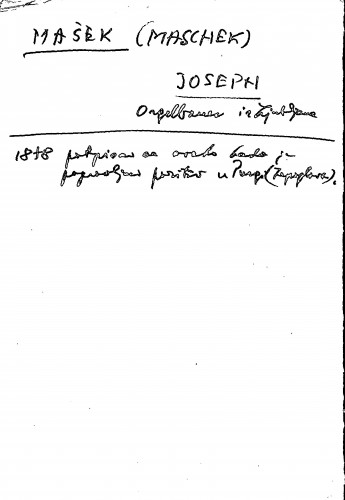 MAŠEK (MASCHEK)
JOSEPH
Orgelbauer iz Ljubljane
1878 potpisao se ovako kada je
popravljao pozitiv u